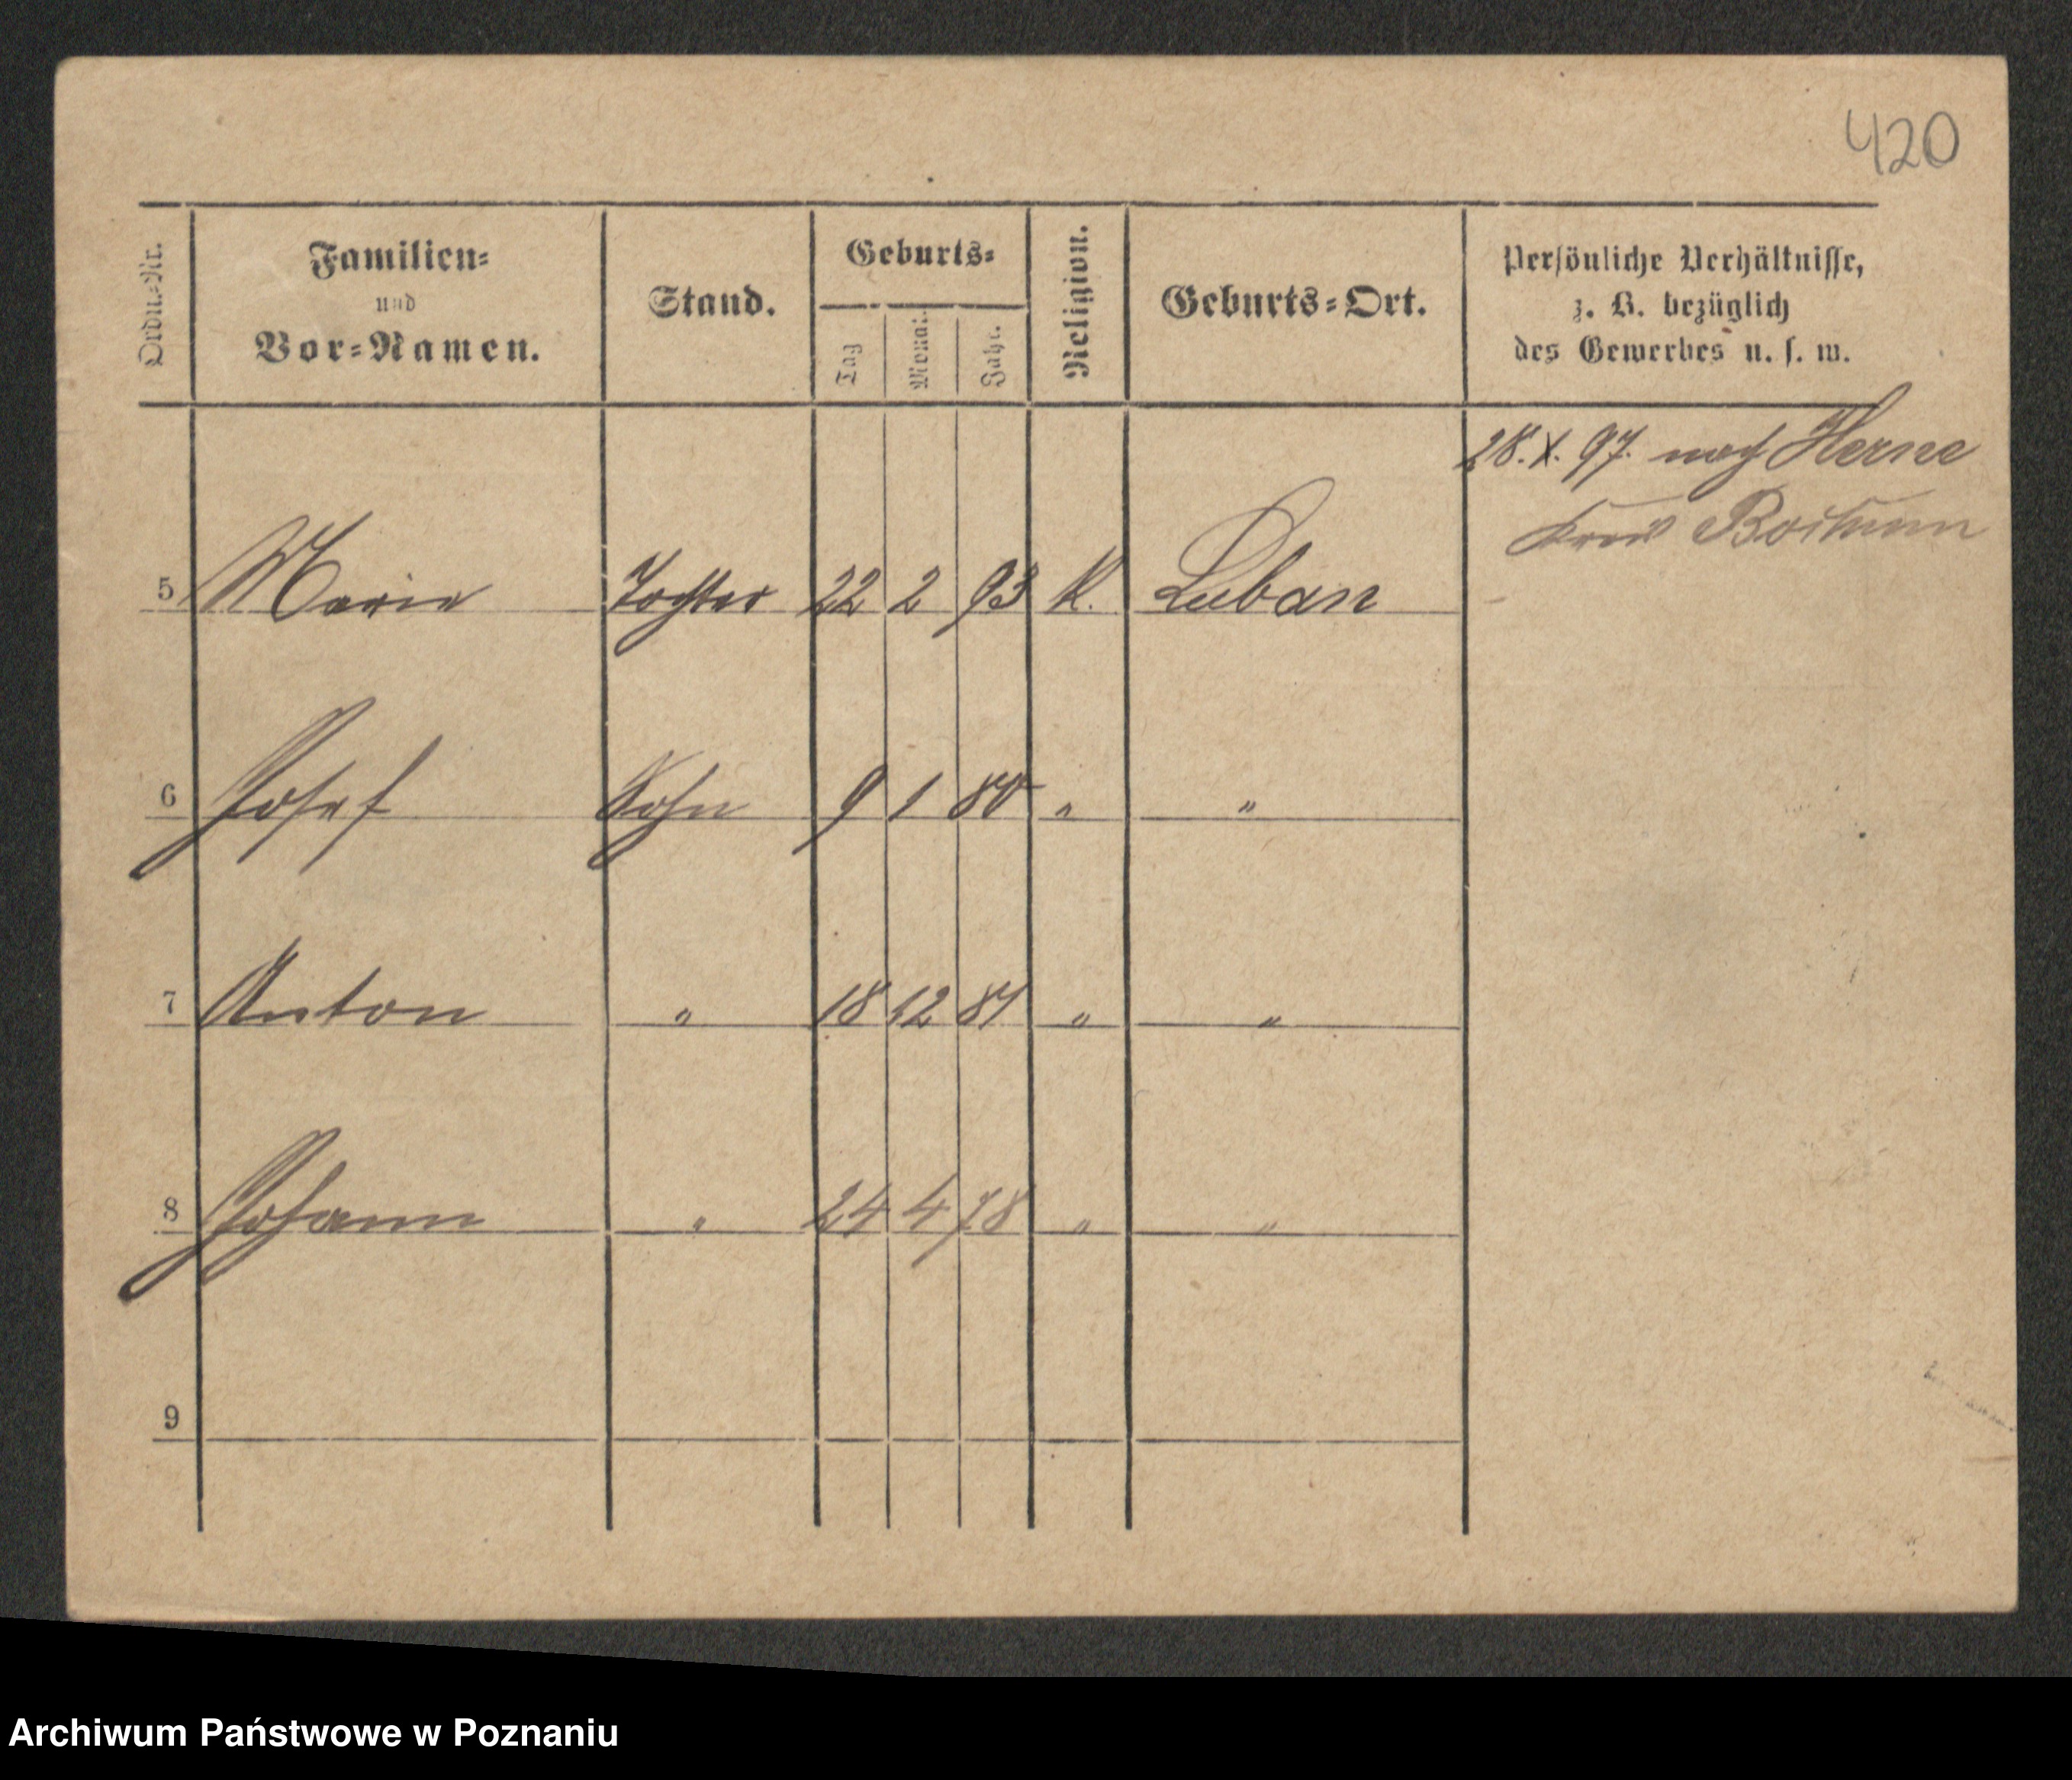 420
Ordn.-Nr.
Familien-
und
Vor-Namen.
Stand.
Geburts-
Tag
Monat
Jahr.
Religion.
Geburts-Ort.
Persönliche Verhältnisse,
z. B. bezüglich
des Gewerbes u. s. w.
28. X. 97. nach Herne
Kreis Bochum
5 Marie Tochter 22 2 93 K. Luban
6 Josef Sohn 9 1 80 " "
7 Anton " 18 12 84 " "
8 Johann " 24 4 78 " "
9
Archiwum Państwowe w Poznaniu